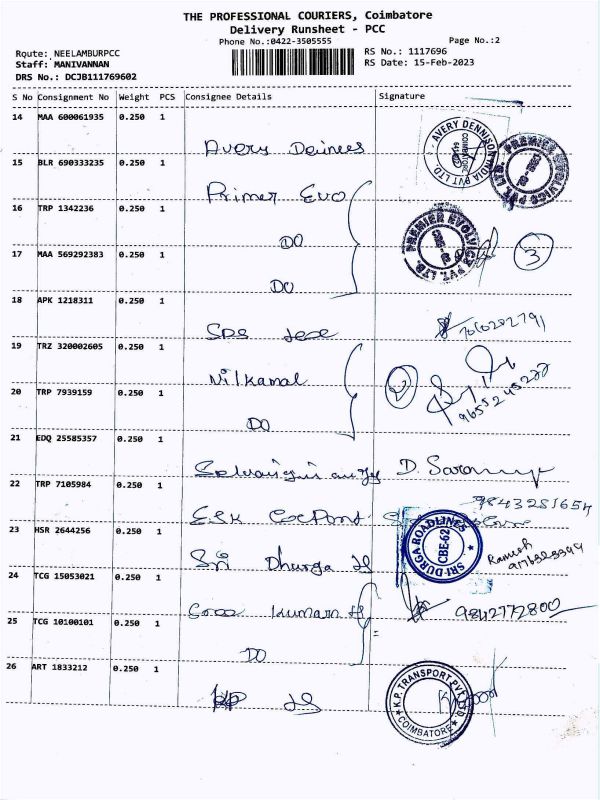 THE PROFESSIONAL COURIERS, Coimbatore
Delivery Runsheet - PCC
Phone No.:0422-3505555
Page No.:2
Route: NEELAMBURPCC
RS No.: 1117696
Staff: MANIVANNAN
RS Date: 15-Feb-2023
DRS No.: DCJB111769602
S No Consignment No Weight PCS Consignee Details Signature
14 MAA 600061935 0.250 1
Avery
AVERY DENNISON INDIA PVT. LTD.
15 BLR 690333235 0.250 1
Primer Evo
PREMIER EVOLVICS PVT. LTD.
16 TRP 1342236 0.250 1
DO
PREMIER EVOLVICS PVT. LTD.
3
17 MAA 569292383 0.250 1
DO
18 APK 1218311 0.250 1
19 TRZ 320002605 0.250 1
Nilkamal
2
20 TRP 7939159 0.250 1
DO
21 EDQ 25585357 0.250 1
22 TRP 7105984 0.250 1
ESK
23 HSR 2644256 0.250 1
Sri Dhurga
SRI-DURGA ROADLINES
CBE-62
Ramesh
24 TCG 15053021 0.250 1
Kumaran
9842772800
25 TCG 10100101 0.250 1
DO
26 ART 1833212 0.250 1
KP
K.P. TRANSPORT PVT. LTD.
COIMBATORE